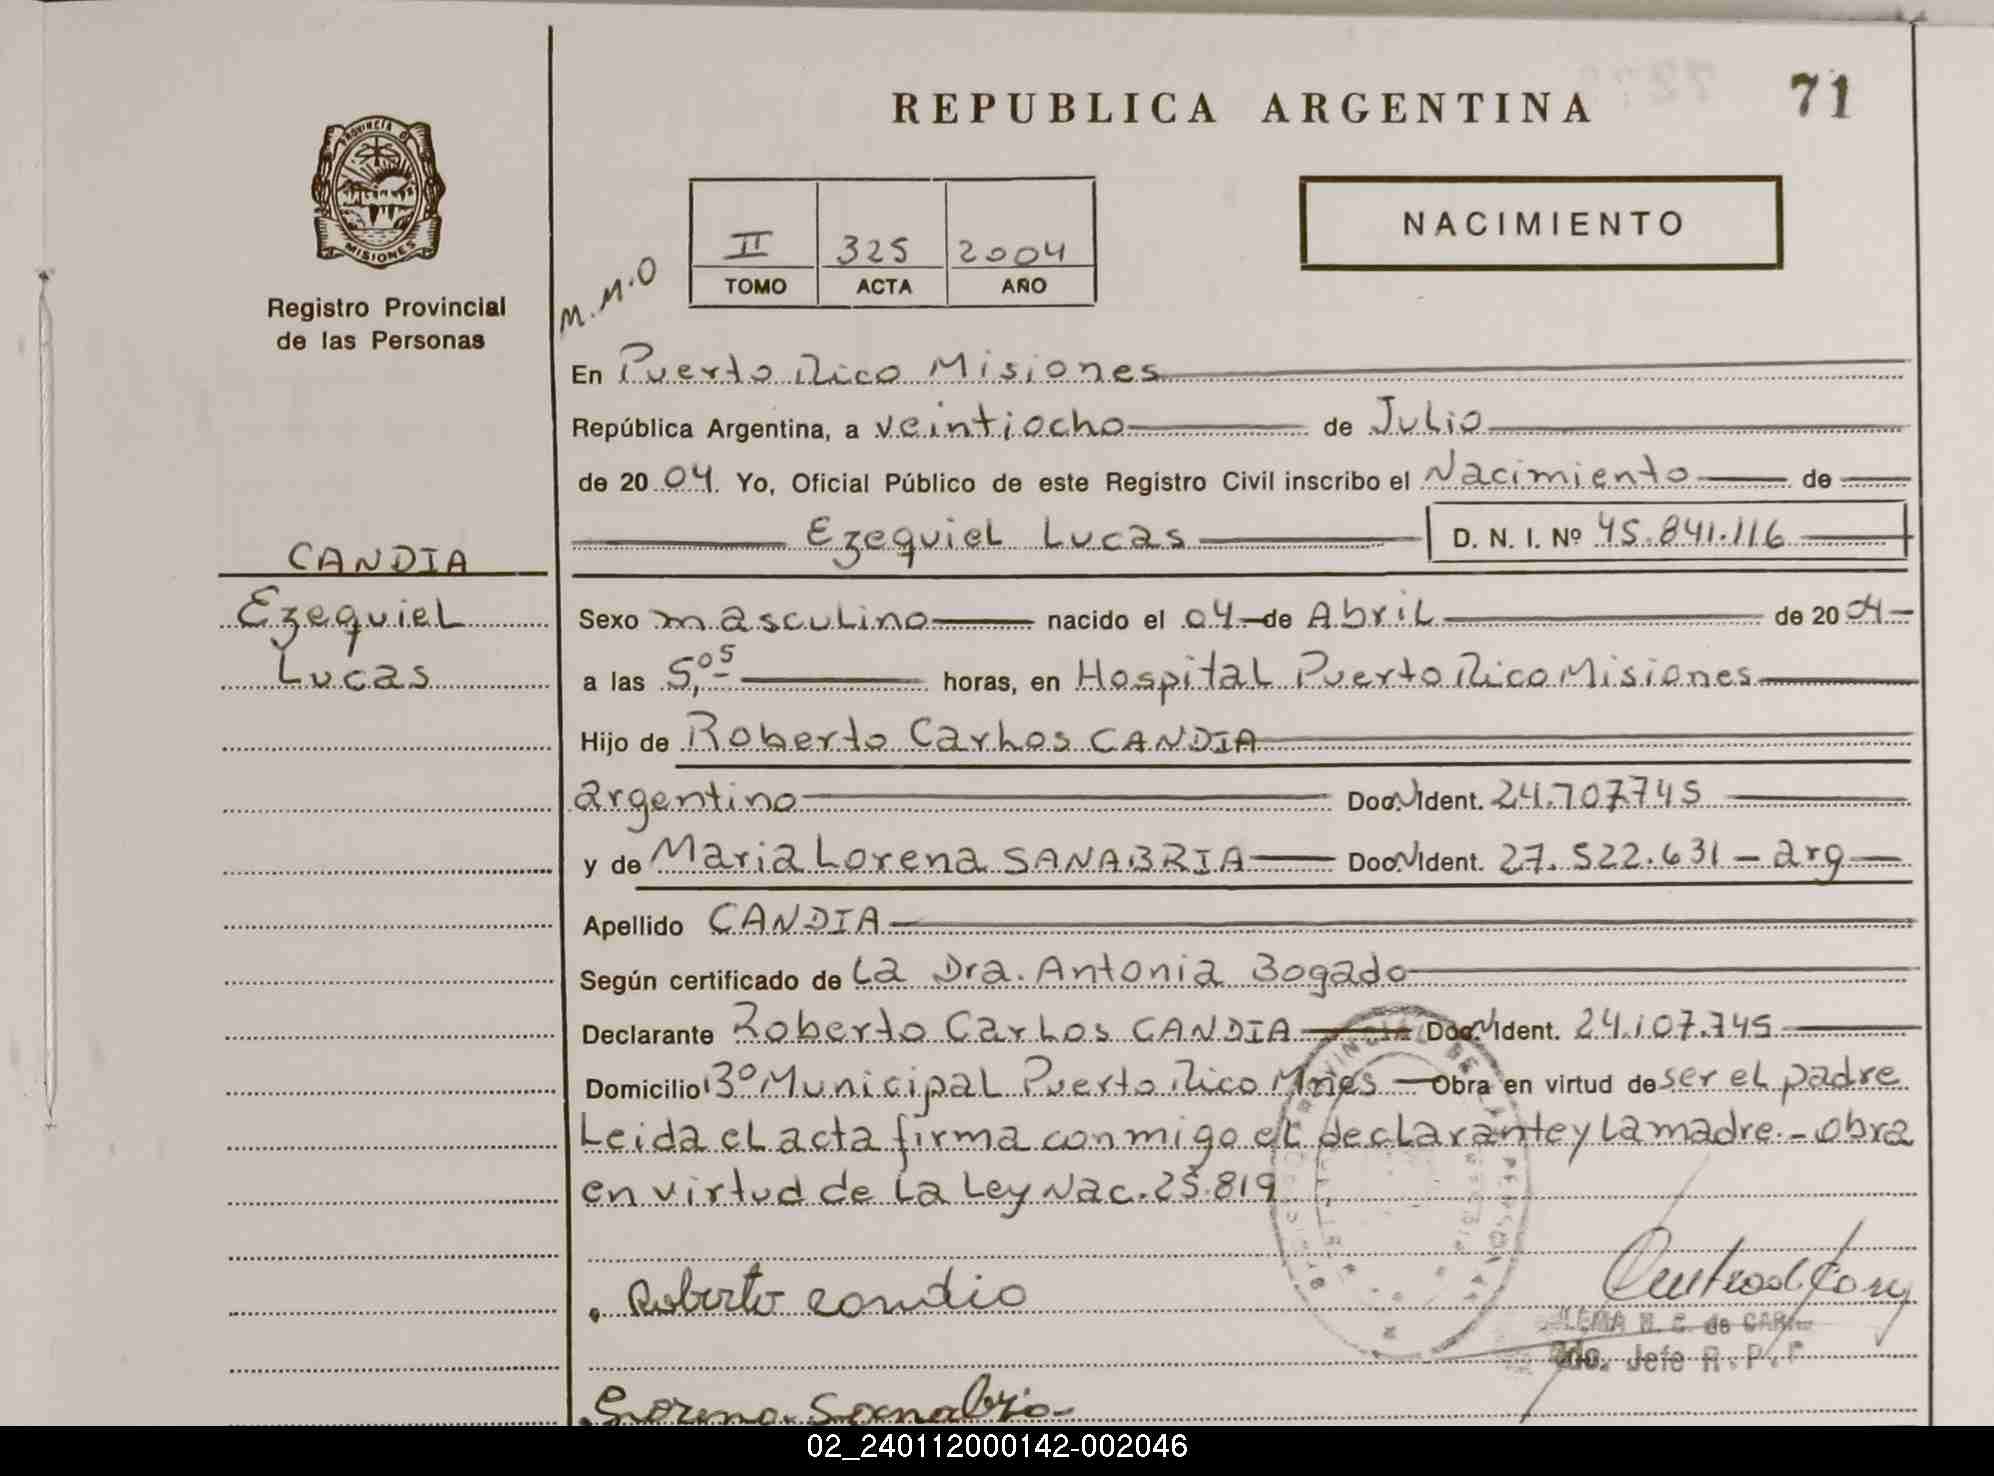 REPUBLICA ARGENTINA
71
PROVINCIA DE
MISIONES
Registro Provincial
de las Personas
NACIMIENTO
II 325 2004
TOMO ACTA AÑO
M.M.O
En Puerto Rico Misiones
República Argentina, a veintiocho de Julio
de 2004. Yo, Oficial Público de este Registro Civil inscribo el Nacimiento de
Ezequiel Lucas D. N. I. Nº 45.841.116
CANDIA
Ezequiel
Lucas
Sexo masculino nacido el 04 de Abril de 2004
a las 5,05 horas, en Hospital Puerto Rico Misiones
Hijo de Roberto Carlos CANDIA
argentino Doc. Ident. 24.707.745
y de Maria Lorena SANABRIA Doc. Ident. 27.522.631 - arg
Apellido CANDIA
Según certificado de La Dra. Antonia Bogado
Declarante Roberto Carlos CANDIA Doc. Ident. 24.107.745
Domicilio Bº Municipal Puerto Rico Mnes Obra en virtud de ser el padre
Leida el acta firma conmigo el declarante y la madre. - obra
en virtud de La Ley Nac. 25.819
Roberto Candia
de CAR
2do. Jefe R.P.P
Lorena Sanabria
02_240112000142-002046